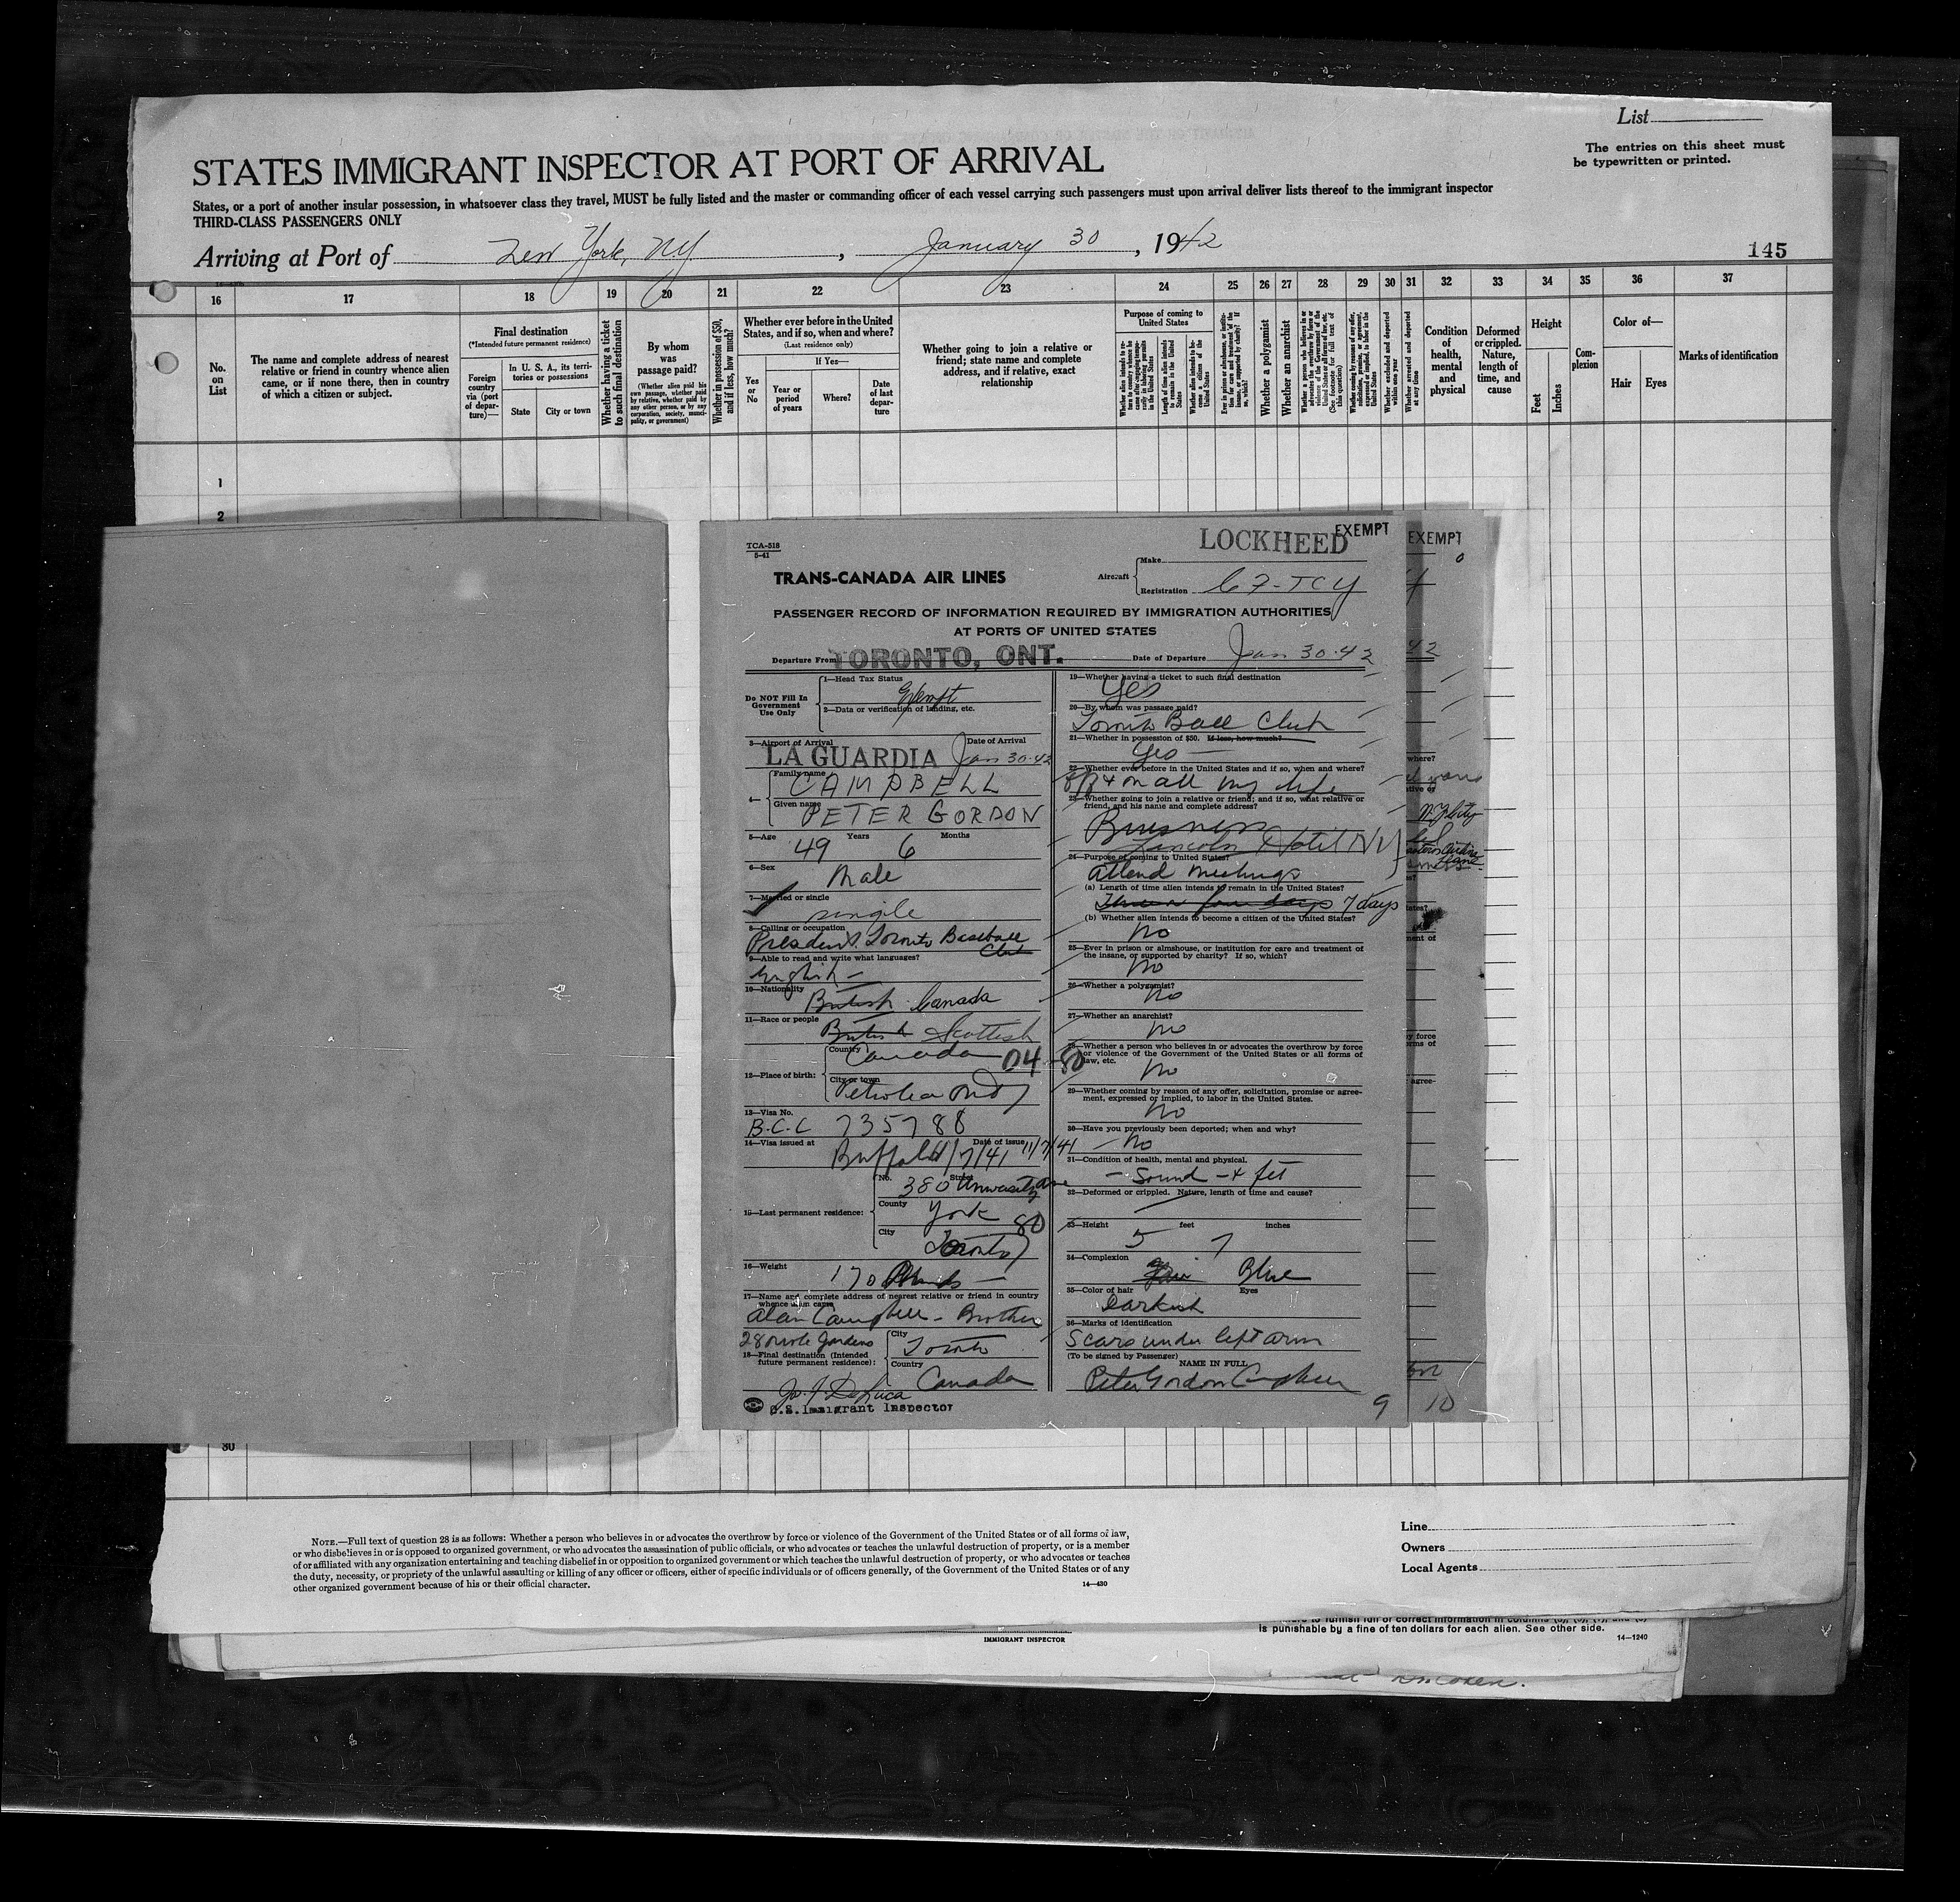 List
The entries on this sheet must
be typewritten or printed.
STATES IMMIGRANT INSPECTOR AT PORT OF ARRIVAL
States, or a port of another insular possession, in whatsoever class they travel, MUST be fully listed and the master or commanding officer of each vessel carrying such passengers must upon arrival deliver lists thereof to the immigrant inspector
THIRD-CLASS PASSENGERS ONLY
Arriving at Port of New York, NY, January 30, 1942
145
16 17 18 19 20 21 22 23 24 25 26 27 28 29 30 31 32 33 34 35 36 37
No. on List
The name and complete address of nearest
relative or friend in country whence alien
came, or if none there, then in country
of which a citizen or subject.
Final destination
(*Intended future permanent residence)
Foreign country via (port of departure)—
In U. S. A., its territories or possessions
State
City or town
Whether having a ticket to such final destination
By whom was passage paid?
(Whether alien paid his own passage, whether paid by relative, whether paid by any other person, or by any corporation, society, municipality, or government)
Whether in possession of $50, and if less, how much?
Whether ever before in the United
States, and if so, when and where?
(Last residence only)
If Yes—
Yes or No
Year or period of years
Where?
Date of last departure
Whether going to join a relative or
friend; state name and complete
address, and if relative, exact
relationship
Purpose of coming to United States
Length of time alien intends to remain in the United States
Whether a polygamist
Whether an anarchist
Whether excluded and deported within one year
Whether arrested and deported at any time
Condition of health, mental and physical
Deformed or crippled. Nature, length of time, and cause
Height
Feet
Inches
Complexion
Color of—
Hair
Eyes
Marks of identification
1
2
TCA-518
5-41
LOCKHEED
EXEMPT
EXEMPT
TRANS-CANADA AIR LINES
Aircraft
Make
Registration CF-TCY
PASSENGER RECORD OF INFORMATION REQUIRED BY IMMIGRATION AUTHORITIES
AT PORTS OF UNITED STATES
Departure From TORONTO, ONT.
Date of Departure Jan 30-42
Do NOT Fill In
Government
Use Only
1—Head Tax Status
Exempt
2—Data or verification of landing, etc.
3—Airport of Arrival LA GUARDIA
Date of Arrival Jan 30-42
4—
Family name CAMPBELL
Given name PETER GORDON
5—Age 49 Years 6 Months
6—Sex Male
7—Married or single
single
8—Calling or occupation
President Toronto Baseball Club
9—Able to read and write what languages?
English —
10—Nationality
British Canada
11—Race or people
British Scottish
12—Place of birth:
Country Canada 04-80
City or town
Petrolea Ont
13—Visa No.
B.C.C 735788
14—Visa issued at
Buffalo 11/7/41
Date of issue 11/7/41
15—Last permanent residence:
No. 380 Street University Ave
County York 80
City Toronto
16—Weight
170 Pounds —
17—Name and complete address of nearest relative or friend in country
whence alien came
Alan Campbell - Brother
28 Gardens
City Toronto
18—Final destination (Intended
future permanent residence):
Country Canada
Jo. J. DeLuca
U.S. Immigrant Inspector
19—Whether having a ticket to such final destination
Yes
20—By whom was passage paid?
Toronto Ball Club
21—Whether in possession of $50. If less, how much?
Yes —
22—Whether ever before in the United States and if so, when and where?
off & on all my life
23—Whether going to join a relative or friend; and if so, what relative or
friend, and his name and complete address?
Business
Lincoln Hotel NY
24—Purpose of coming to United States?
attend meetings
(a) Length of time alien intends to remain in the United States?
7 days
(b) Whether alien intends to become a citizen of the United States?
No
25—Ever in prison or almshouse, or institution for care and treatment of
the insane, or supported by charity? If so, which?
No
26—Whether a polygamist?
No
27—Whether an anarchist?
No
28—Whether a person who believes in or advocates the overthrow by force
or violence of the Government of the United States or all forms of
law, etc.
No
29—Whether coming by reason of any offer, solicitation, promise or agree-
ment, expressed or implied, to labor in the United States.
No
30—Have you previously been deported; when and why?
— No
31—Condition of health, mental and physical.
— Sound — & fit
32—Deformed or crippled. Nature, length of time and cause?
33—Height 5 feet 7 inches
34—Complexion
Blue
35—Color of hair Eyes
Darkish
36—Marks of identification
Scars under left arm
(To be signed by Passenger)
NAME IN FULL
Peter Gordon Campbell
9
10
30
NOTE.—Full text of question 28 is as follows: Whether a person who believes in or advocates the overthrow by force or violence of the Government of the United States or of all forms of law,
or who disbelieves in or is opposed to organized government, or who advocates the assassination of public officials, or who advocates or teaches the unlawful destruction of property, or is a member
of or affiliated with any organization entertaining and teaching disbelief in or opposition to organized government or which teaches the unlawful destruction of property, or who advocates or teaches
the duty, necessity, or propriety of the unlawful assaulting or killing of any officer or officers, either of specific individuals or of officers generally, of the Government of the United States or of any
other organized government because of his or their official character.
14—430
Line
Owners
Local Agents
is punishable by a fine of ten dollars for each alien. See other side.
14—1240
IMMIGRANT INSPECTOR